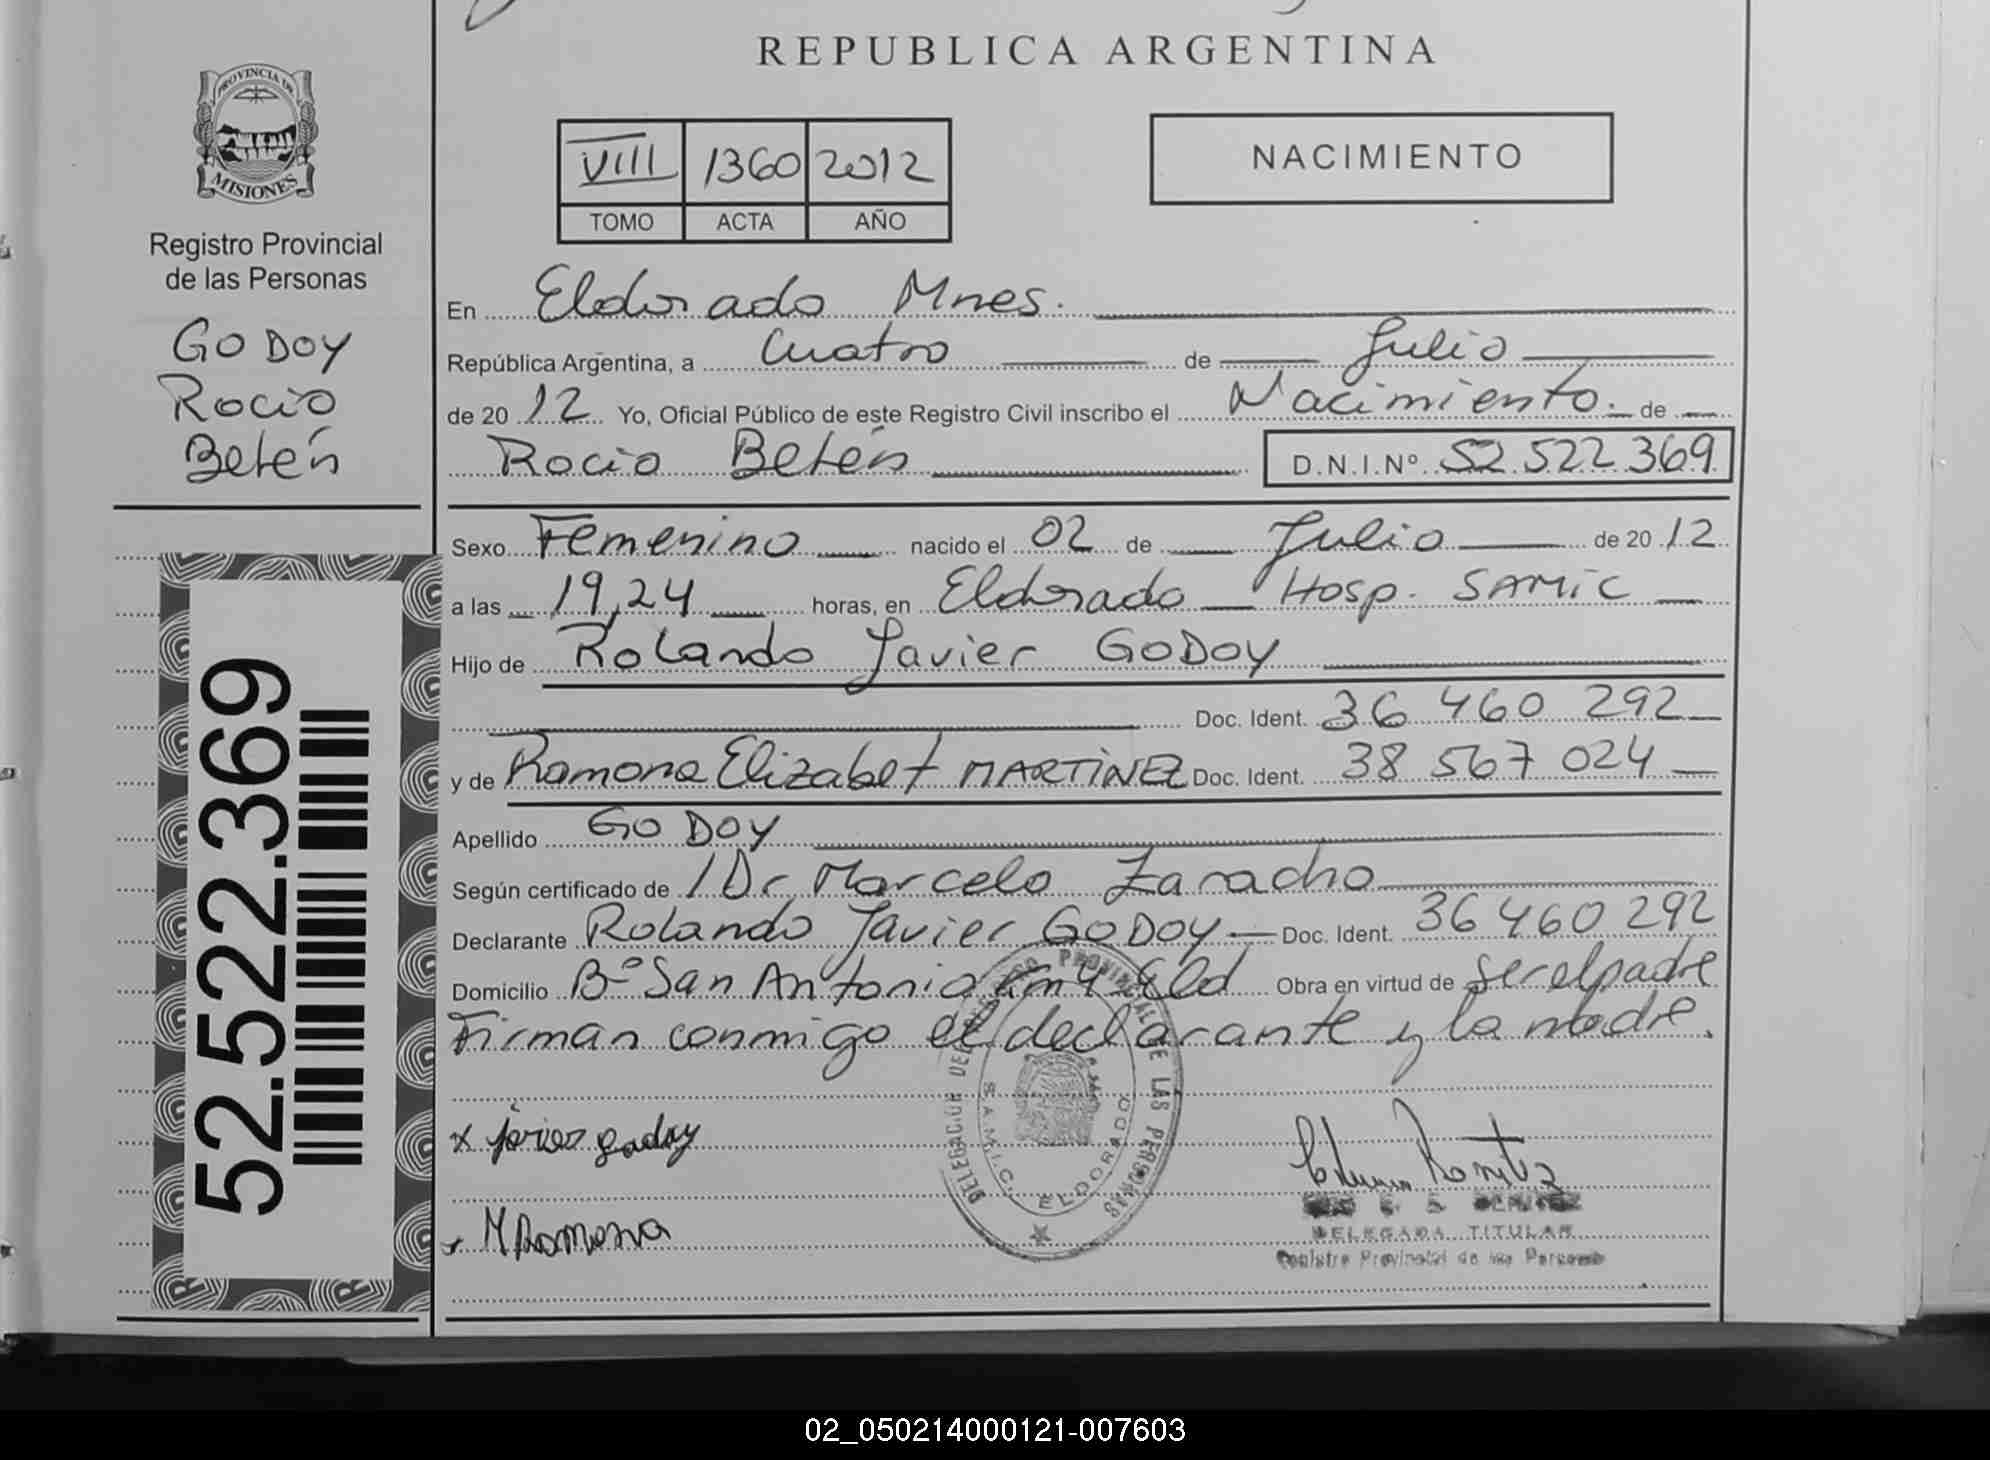 REPUBLICA ARGENTINA
PROVINCIA DE
MISIONES
Registro Provincial
de las Personas
GODOY
Rocio
Belén
VIII 1360 2012
TOMO ACTA AÑO
NACIMIENTO
En Eldorado Mnes.
República Argentina, a Cuatro de Julio
de 20 12 Yo, Oficial Público de este Registro Civil inscribo el Nacimiento. de
Rocio Belén D.N.I.Nº 52 522 369
Sexo Femenino nacido el 02 de Julio de 20 12
a las 19,24 horas, en Eldorado Hosp. SAMIC
Hijo de Rolando Javier GODOY
Doc. Ident. 36 460 292
y de Ramona Elizabet MARTINEZ Doc. Ident. 38 567 024
Apellido GODOY
Según certificado de Dr Marcelo Zaracho
Declarante Rolando Javier GODOY Doc. Ident. 36 460 292
Domicilio Bº San Antonio km 4 Eld Obra en virtud de ser el padre
Firman conmigo el declarante y la madre.
x javier godoy
M Ramona
PROVINCIAL DE LAS PERSONAS
S.A.M.I.C. ELDORADO
Benitez
DELEGADA TITULAR
Registro Provincial de las Personas
52.522.369
02_050214000121-007603